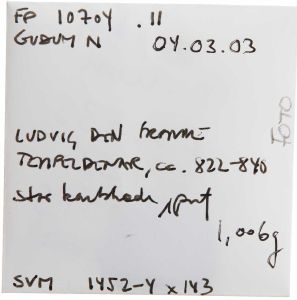 FP 10704 .11
GUDUM N 04.03.03
FOTO
LUDVIG DEN FROMME
TEMPELDENAR, ca. 822-840
stor kantskade,
1,006g
SVM 1452-4 x 143